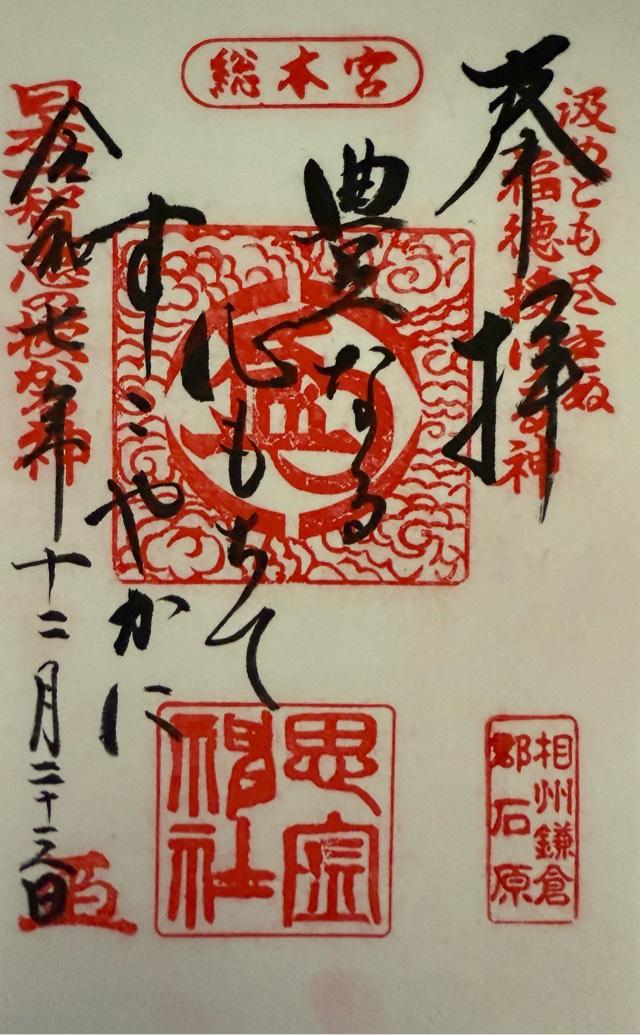 総本宮
汲めども尽きぬ
福徳授ける神
奉拝
豊なる
心もちて
すこやかに
令和七年十二月二十三日
思金神社
相州鎌倉
郡石原